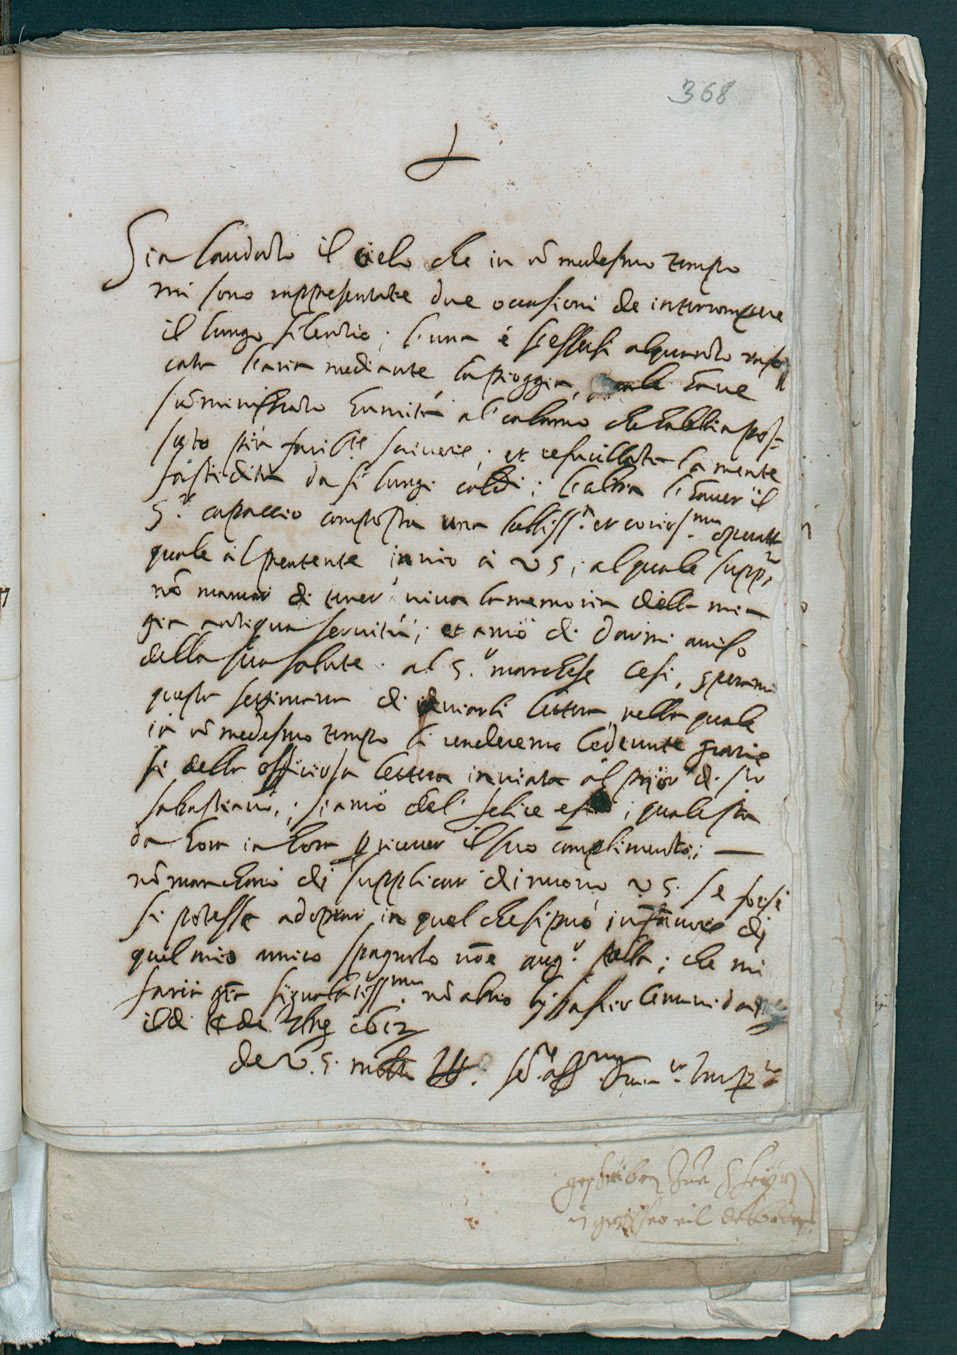 368
Sia laudato il Cielo che in un medesmo tempo
mi sono rappresentate due occasioni de interrompere
il lungo silentio; l'una é l'essersi alquanto rinfre
cata l'aria mediante la pioggia, quale have
sūministrato humità al calamo che habbia pos-
suto più facil.te scrivere; et refucillata la mente
fastidita da sì lunghi caldi; l'altra l'haver il
S.r capaccio composta una belliss.ª et curios.ma operetta
quale al presente invio à V S; al quale supp.co
nō manchi di tener viva la memoria della mia
già antiqua servitù; et anco di darmi aviso
della sua salute. al S.r marchese Cesi, sperarei
questa settimana di inviarli lettera, nella quale
in ū medesmo tempo li renderemo le devute gratie
sì della officiosa lettera inviata al prior di sto
sabastiano; sì anco del felice ; quale sta
da hora in hora p ricever il suo complimento; —
nō mancherò di supplicar di nuovo V S. se forse
si potesse adoprar in quel che si può in favore di
quel mio amico spagnolo nōe aug.º ; che mi
faria gra signalatiss.ma. nō altro
ildi de 7bre 1612
de V. S. molto Ill. se.r aff.mo
geschriben